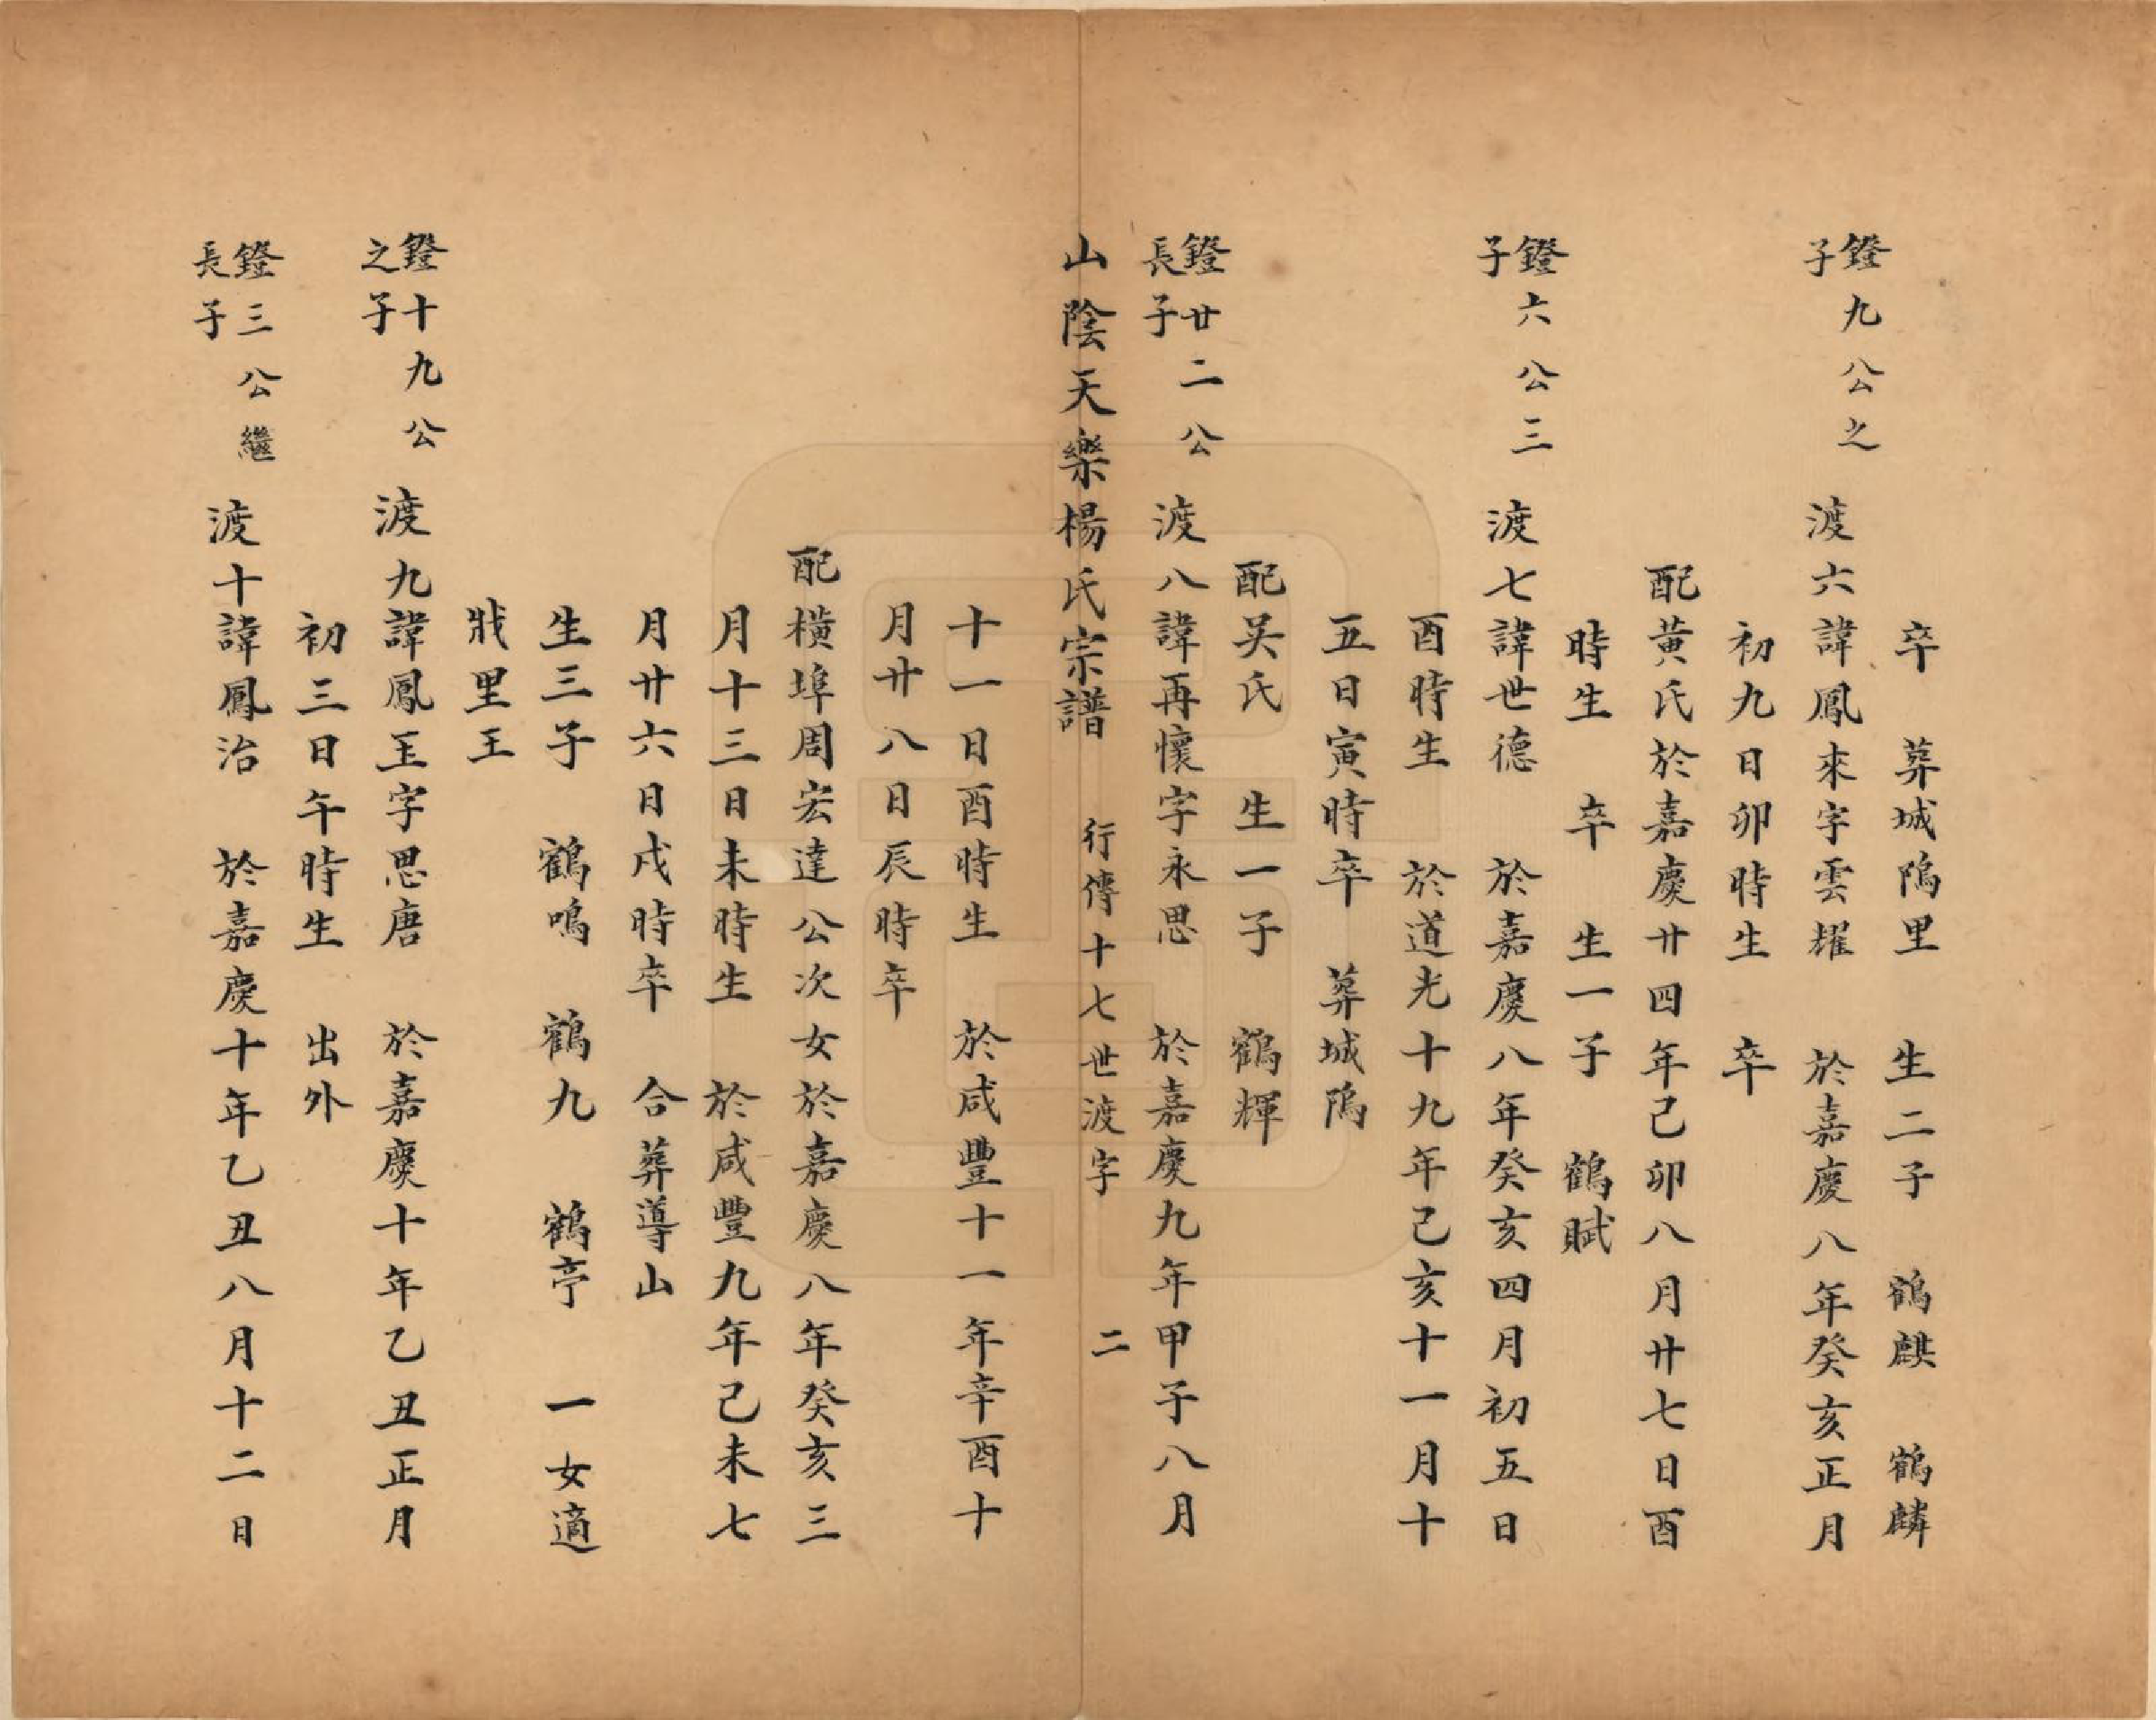 卒 葬城隖里 生二子 鶴麒 鶴麟
鐙九公之子 渡六諱鳳來字雲耀 於嘉慶八年癸亥正月
初九日卯時生 卒
配黄氏於嘉慶廿四年己卯八月廿七日酉
時生 卒 生一子 鶴賦
鐙六公三子 渡七諱世德 於嘉慶八年癸亥四月初五日
酉時生 於道光十九年己亥十一月十
五日寅時卒 葬城隖
配吴氏 生一子 鶴輝
鐙廿二公長子 渡八諱再懷字永思 於嘉慶九年甲子八月
山陰天樂楊氏宗譜 行傳十七世渡字 二
十一日酉時生 於咸豐十一年辛酉十
月廿八日辰時卒
配橫埠周宏達公次女於嘉慶八年癸亥三
月十三日未時生 於咸豐九年己未七
月廿六日戌時卒 合葬導山
生三子 鶴鳴 鶴九 鶴亭 一女適
戕里王
鐙十九公之子 渡九諱鳳玉字思唐 於嘉慶十年乙丑正月
初三日午時生 出外
鐙三公繼長子 渡十諱鳳治 於嘉慶十年乙丑八月十二日